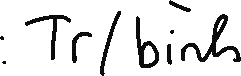 : Tr/bình